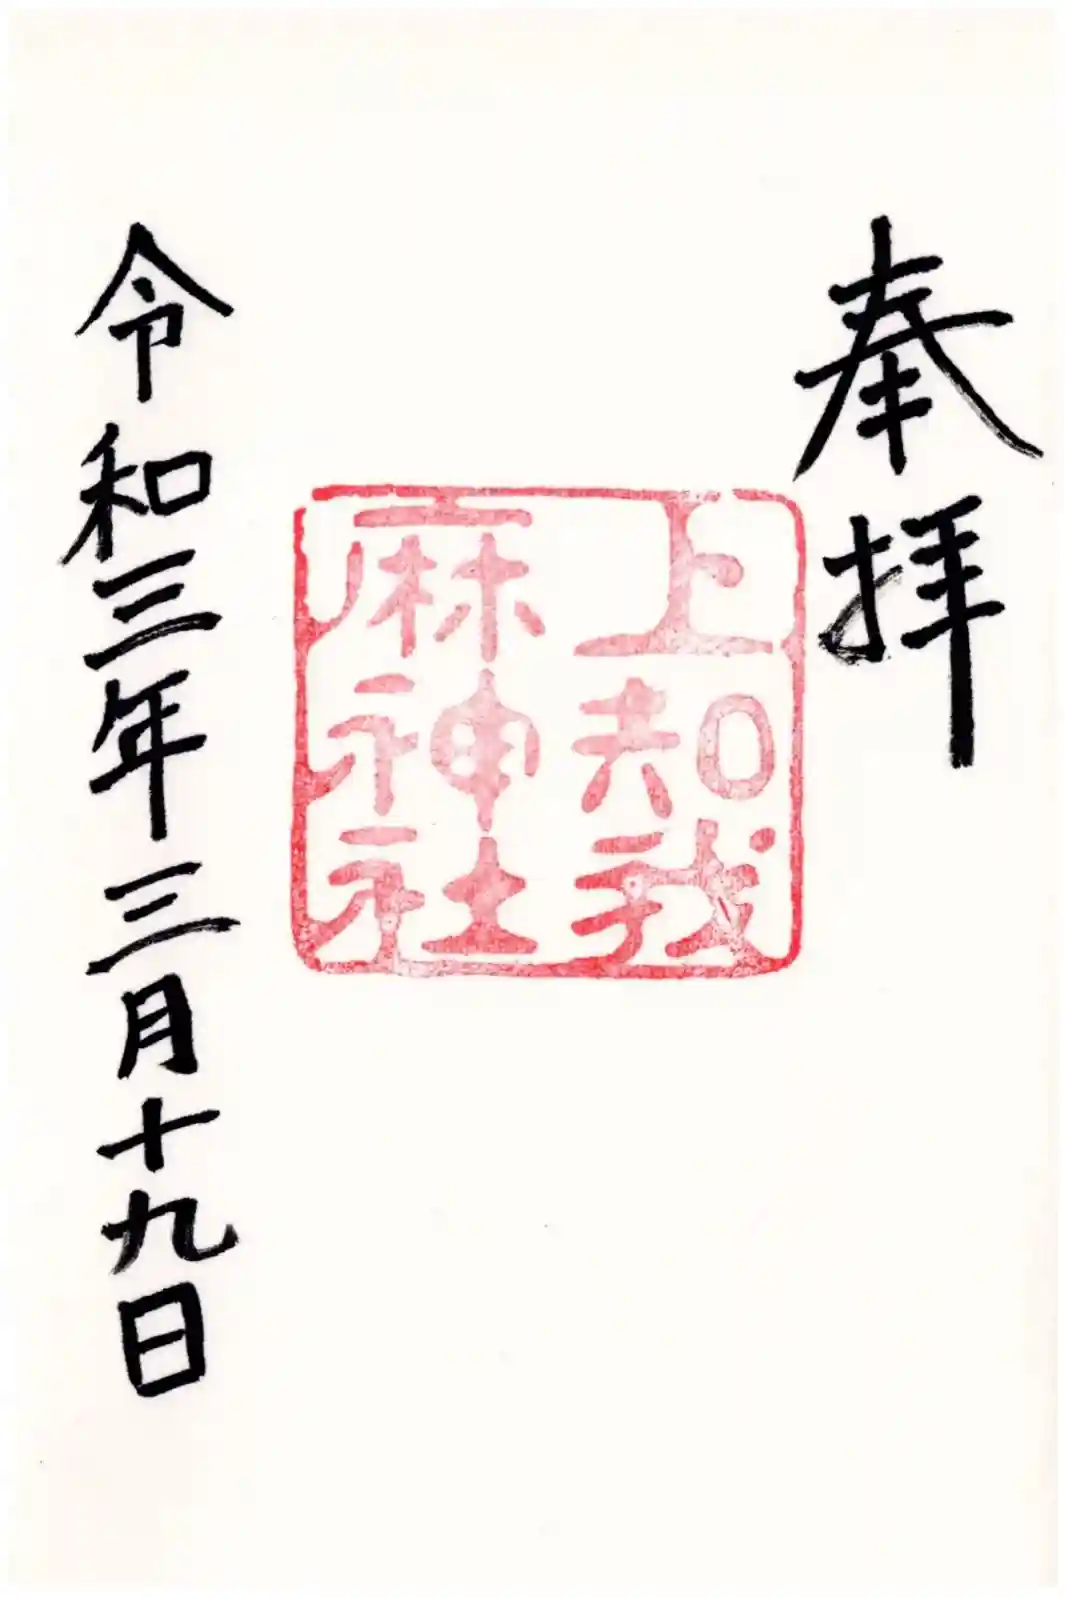 奉拝
上知我
麻神社
令和三年三月十九日